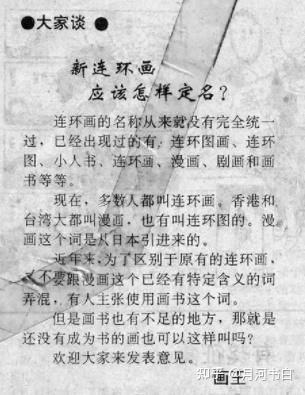 ●大家谈●
新连环画
应该怎样定名？
连环画的名称从来就没有完全统一
过，已经出现过的有：连环图画、连环
图、小人书、连环画、漫画、剧画和画
书等等。
现在，多数人都叫连环画。香港和
台湾大都叫漫画，也有叫连环图的。漫
画这个词是从日本引进来的。
近年来，为了区别于原有的连环画，
又不要跟漫画这个已经有特定含义的词
弄混，有人主张使用画书这个词。
但是画书也有不足的地方，那就是
还没有成为书的画也可以这样叫吗？
欢迎大家来发表意见。
画王
知乎 @月河书白